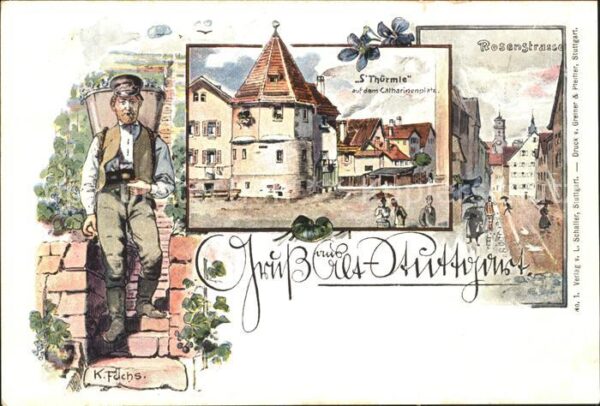 Rosenstrasse
„S'Thürmle"
auf dem Catharinenplatz.
Gruß aus Alt-Stuttgart.
K. Fuchs.
No. 1. Verlag v. L. Schaller, Stuttgart. — Druck v. Greiner & Pfeiffer, Stuttgart.